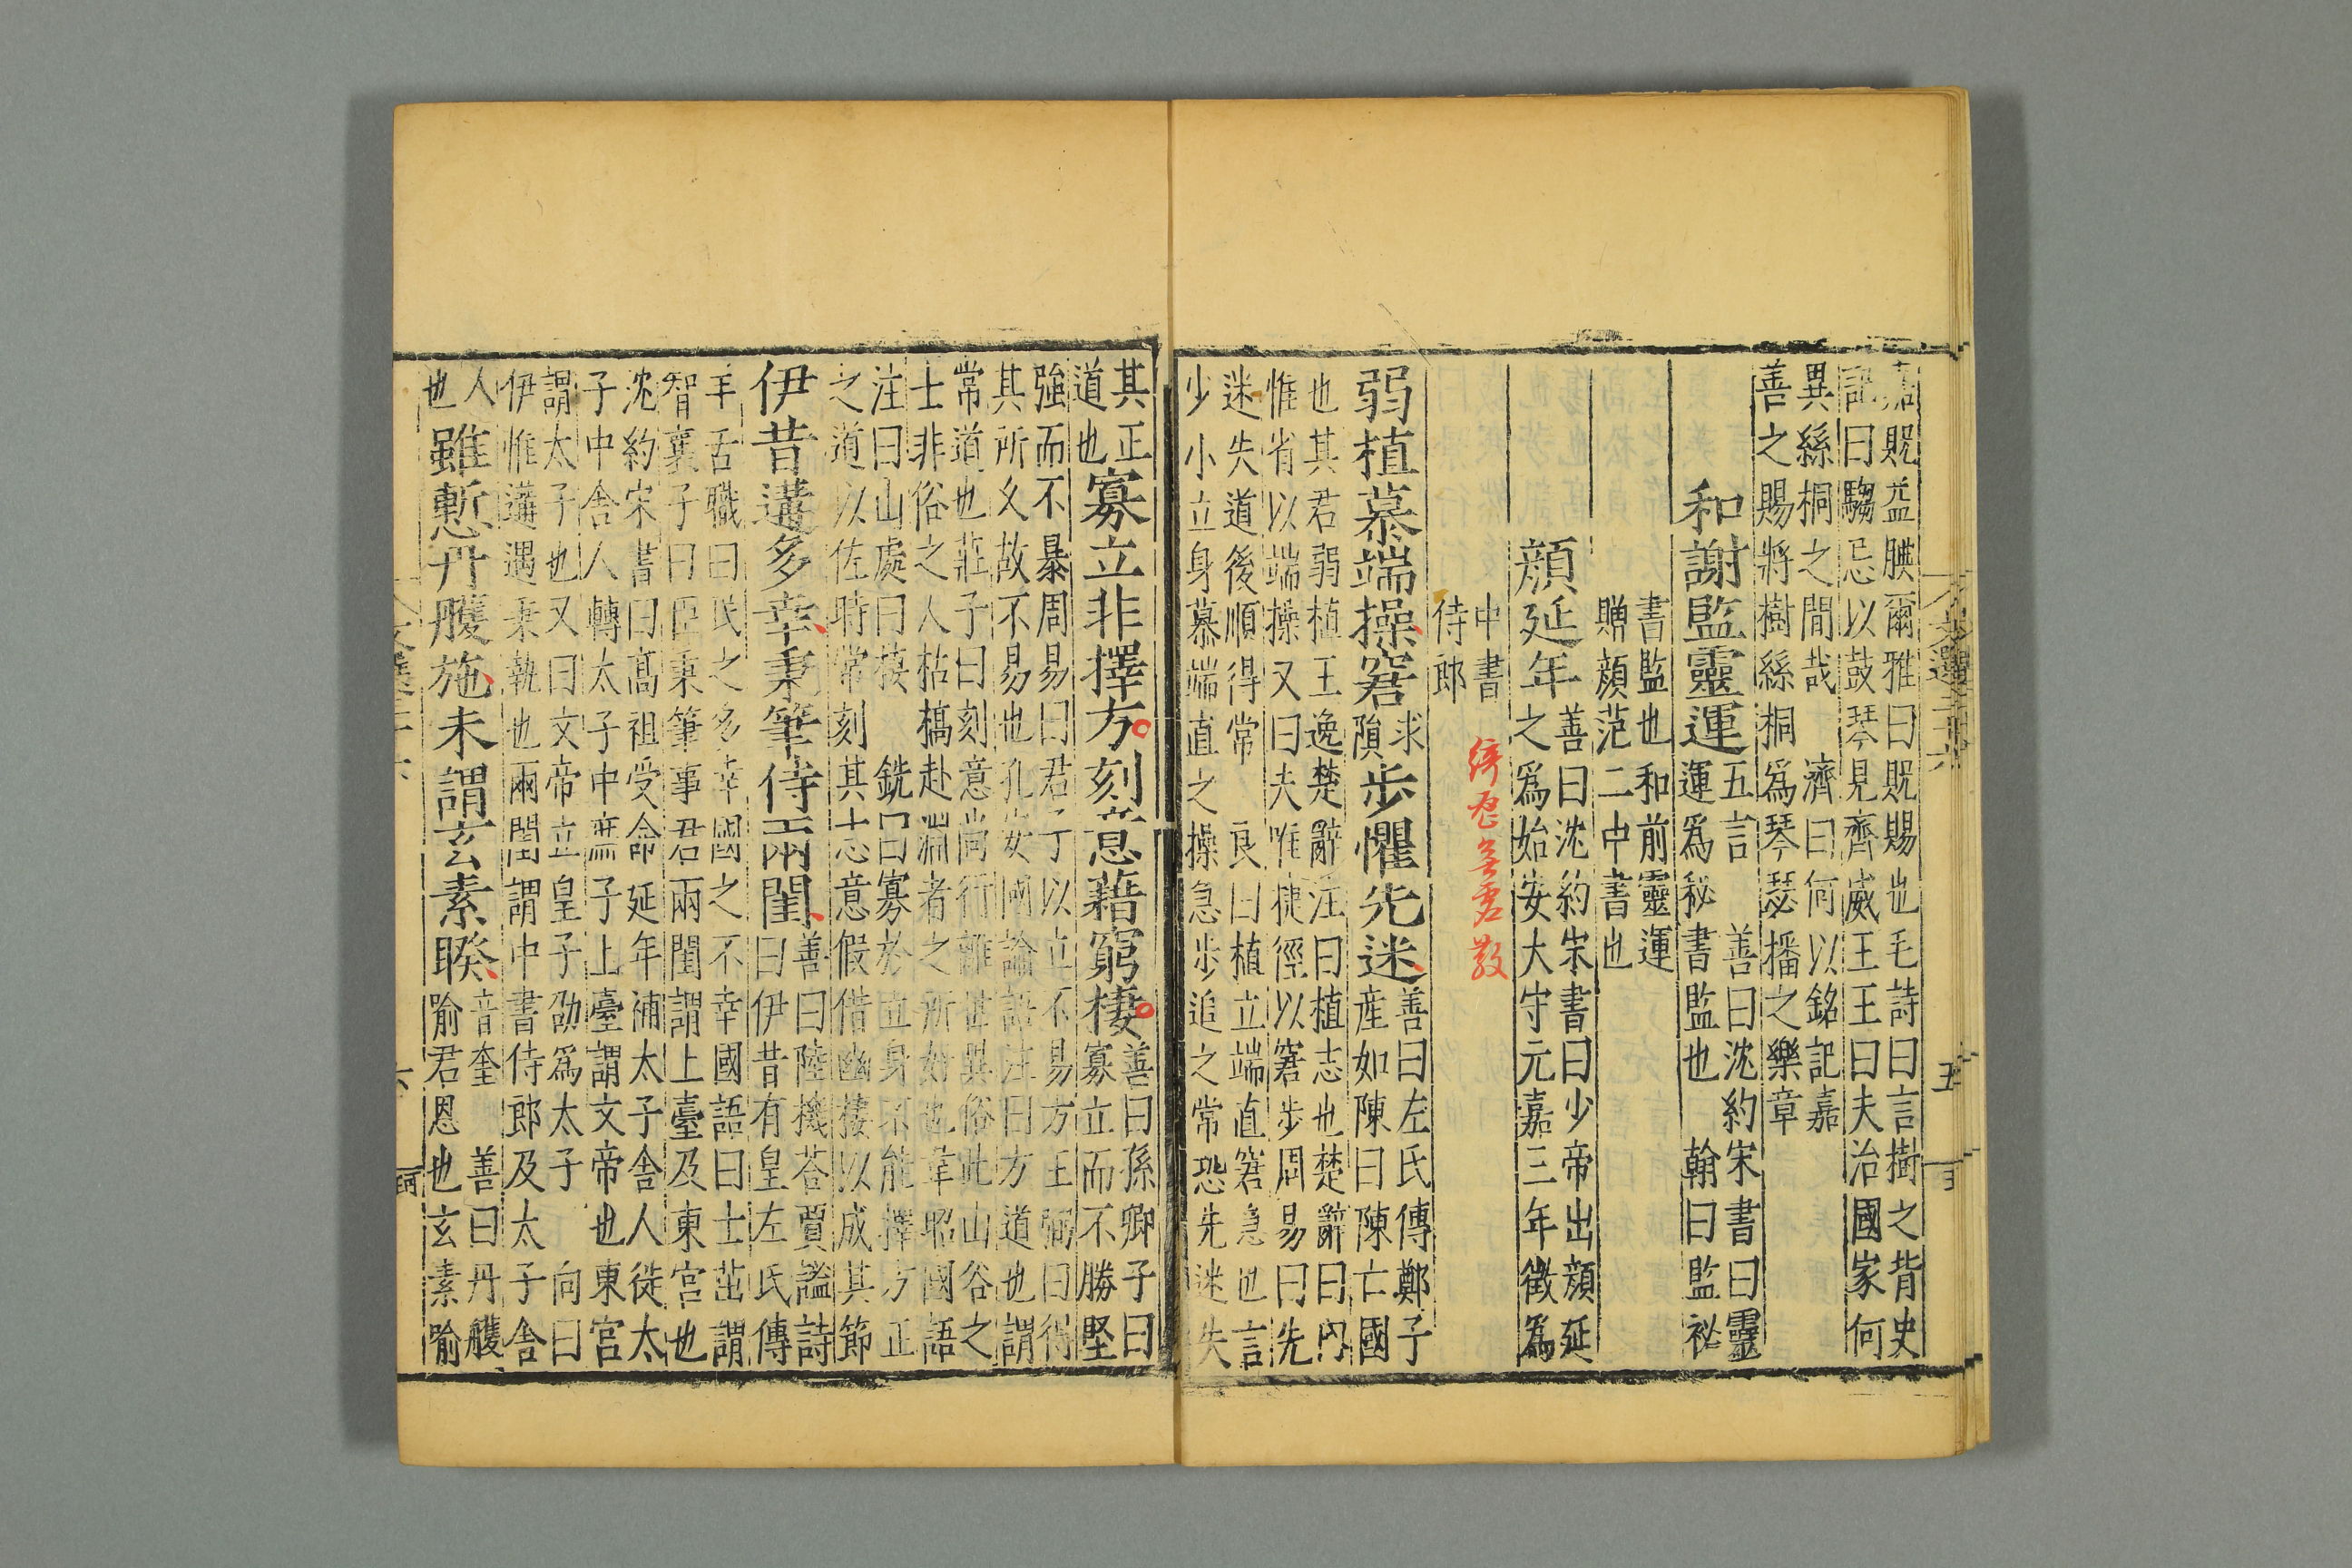 嘉貺益腆爾雅曰貺賜也毛詩曰言樹之背史
記曰騶忌以鼓琴見齊威王王曰夫治國家何
異絲桐之間哉 濟曰何以銘記嘉
善之賜將樹絲桐爲琴瑟播之樂章
和謝監靈運五言 善曰沈約宋書曰靈
運爲秘書監也 翰曰監祕
書監也和前靈運
贈顔范二中書也
顔延年善曰沈約宋書曰少帝出顔延
之爲始安大守元嘉三年徵爲
中書
侍郎
弱植慕端操窘求
隕步懼先迷善曰左氏傳鄭子
産如陳曰陳亡國
也其君弱植王逸楚辭注曰植志也楚辭曰内
惟省以端操又曰夫唯捷徑以窘步周易曰先
迷失道後順得常 良曰植立端直窘急也言
少小立身慕端直之操急步追之常恐先迷失
五
其正
道也寡立非擇方刻意藉窮棲善曰孫卿子曰
寡立而不勝堅
強而不暴周易曰君子以立不易方王弼曰得
其所久故不易也孔安國論語注曰方道也謂
常道也莊子曰刻意尚行離世異俗此山谷之
士非俗之人枯槁赴淵者之所好也韋昭國語
注曰山處曰棲 銑曰寡於立身不能擇方正
之道以佐時常刻其志意假借幽棲以成其節
伊昔遘多幸秉筆侍兩閨善曰陸機荅賈謐詩
曰伊昔有皇左氏傳
羊舌職曰民之多幸國之不幸國語曰士茁謂
智襄子曰臣秉筆事君兩閨謂上臺及東宮也
沈約宋書曰高祖受命延年補太子舎人徙太
子中舎人轉太子中庶子上臺謂文帝也東宮
謂太子也又曰文帝立皇子劭爲太子 向曰
伊惟遘遇秉執也兩閨謂中書侍郎及太子舎
人
也雖慙丹雘施未謂玄素睽音奎 善曰丹雘
喻君恩也玄素喻
六